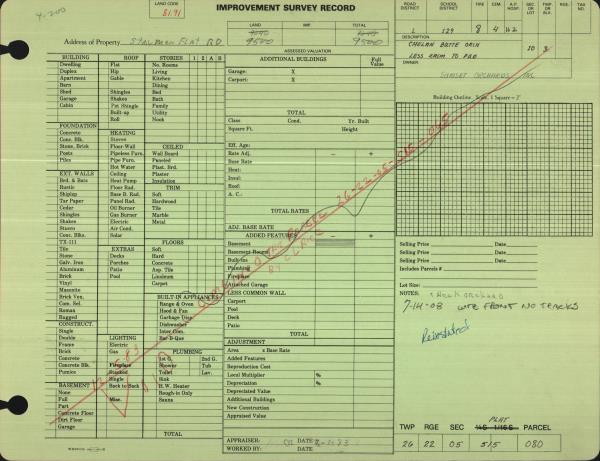 IMPROVEMENT SURVEY RECORD
LAND CODE
8191
ROAD DISTRICT
SCHOOL DISTRICT
FIRE
CEM.
HOSP.
TAG NO.
L 129 8 4 #2
LAND
IMP.
TOTAL
9500
9500
ASSESSED VALUATION
Address of Property STALMEN FLAT RD
DESCRIPTION
CHELAN BUTE ORCH
LESS ESMT TO PUD
10 9
OWNER
SUNSET ORCHARDS INC
BUILDING
ROOF
STORIES 1 2 A B
Dwelling Flat No. Rooms
Duplex Hip Living
Apartment Gable Kitchen
Barn Dining
Shed Shingles Bed
Garage Shakes Bath
Cabin Pat Shingle Family
Built-up Utility
Roll Nook
FOUNDATION
Concrete HEATING
Conc. Blk. Stoves
Stone, Brick Floor-Wall CEILED
Posts Pipeless Furn. Wall Board
Piles Pipe Furn. Paneled
Hot Water Plast. Brd.
EXT. WALLS Ceiling Plaster
Bed. & Bats Heat Pump Insulation
Rustic Floor Rad. TRIM
Shiplap Base B. Rad. Soft
Tar Paper Panel Rad. Hardwood
Cedar Oil Burner Tile
Shingles Gas Burner Marble
Shakes Electric Metal
Stucco Air Cond.
Conc. Blks. Solar
TX-111 FLOORS
Tile EXTRAS Soft
Stone Decks Hard
Galv. Iron Porches Concrete
Aluminum Patio Asp. Tile
Brick Pool Linoleum
Vinyl Carpet
Masonite
Brick Ven. BUILT-IN APPLIANCES
Com. Sel. Range & Oven
Roman Hood & Fan
Rugged Garbage Disp.
CONSTRUCT. Dishwasher
Single Inter Com.
Double LIGHTING Bar-B-Que
Frame Electric
Brick Gas PLUMBING
Concrete 1st G. 2nd G.
Concrete Blk. Fireplace Shower Tub
Pumice Stacked Toilet Lav.
Single Sink
BASEMENT Back to Back H.W. Heater
None Rough-in Only
Full Misc. Sauna
Part
Concrete Floor
Dirt Floor
Garage TOTAL
ADDITIONAL BUILDINGS
Full Value
Garage: X
Carport: X
TOTAL
Class Cond. Yr. Built
Square Ft. Height
Eff. Age:
Rate Adj. – +
Base Rate
Heat:
Insul:
Roof:
A. C.:
TOTAL RATES
ADJ. BASE RATE
ADDED FEATURES – +
Basement
Basement Rooms
Built-ins
Plumbing
Fireplace
Attached Garage
LESS COMMON WALL
Carport
Pool
Deck
Patio
TOTAL
ADJUSTMENT
Area x Base Rate
Added Features
Reproduction Cost
Local Multiplier %
Depreciation %
Depreciated Value
Additional Buildings
New Construction
Appraised Value
APPRAISER: DATE
WORKED BY: DATE
Building Outline Scale 1 Square = 5'
Selling Price Date
Selling Price Date
Selling Price Date
Includes Parcels #
Lot Size:
NOTES:
7-14-08 WTR FRONT NO TRACKS
Reinstated
TWP RGE SEC PLAT PARCEL
26 22 05 515 080